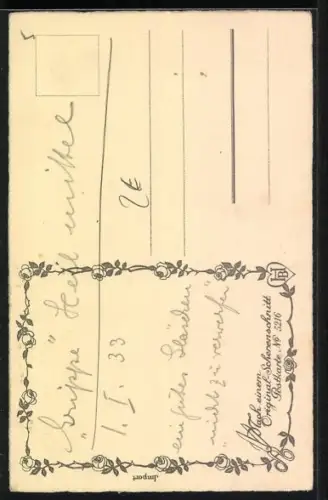 "Grippe" Heil mittel
1. I. 33
ein gutes
"nicht zu verwerfen"
2€
Nach einem
Original-Scherenschnitt
Postkarte No 5216
HB
Import
5